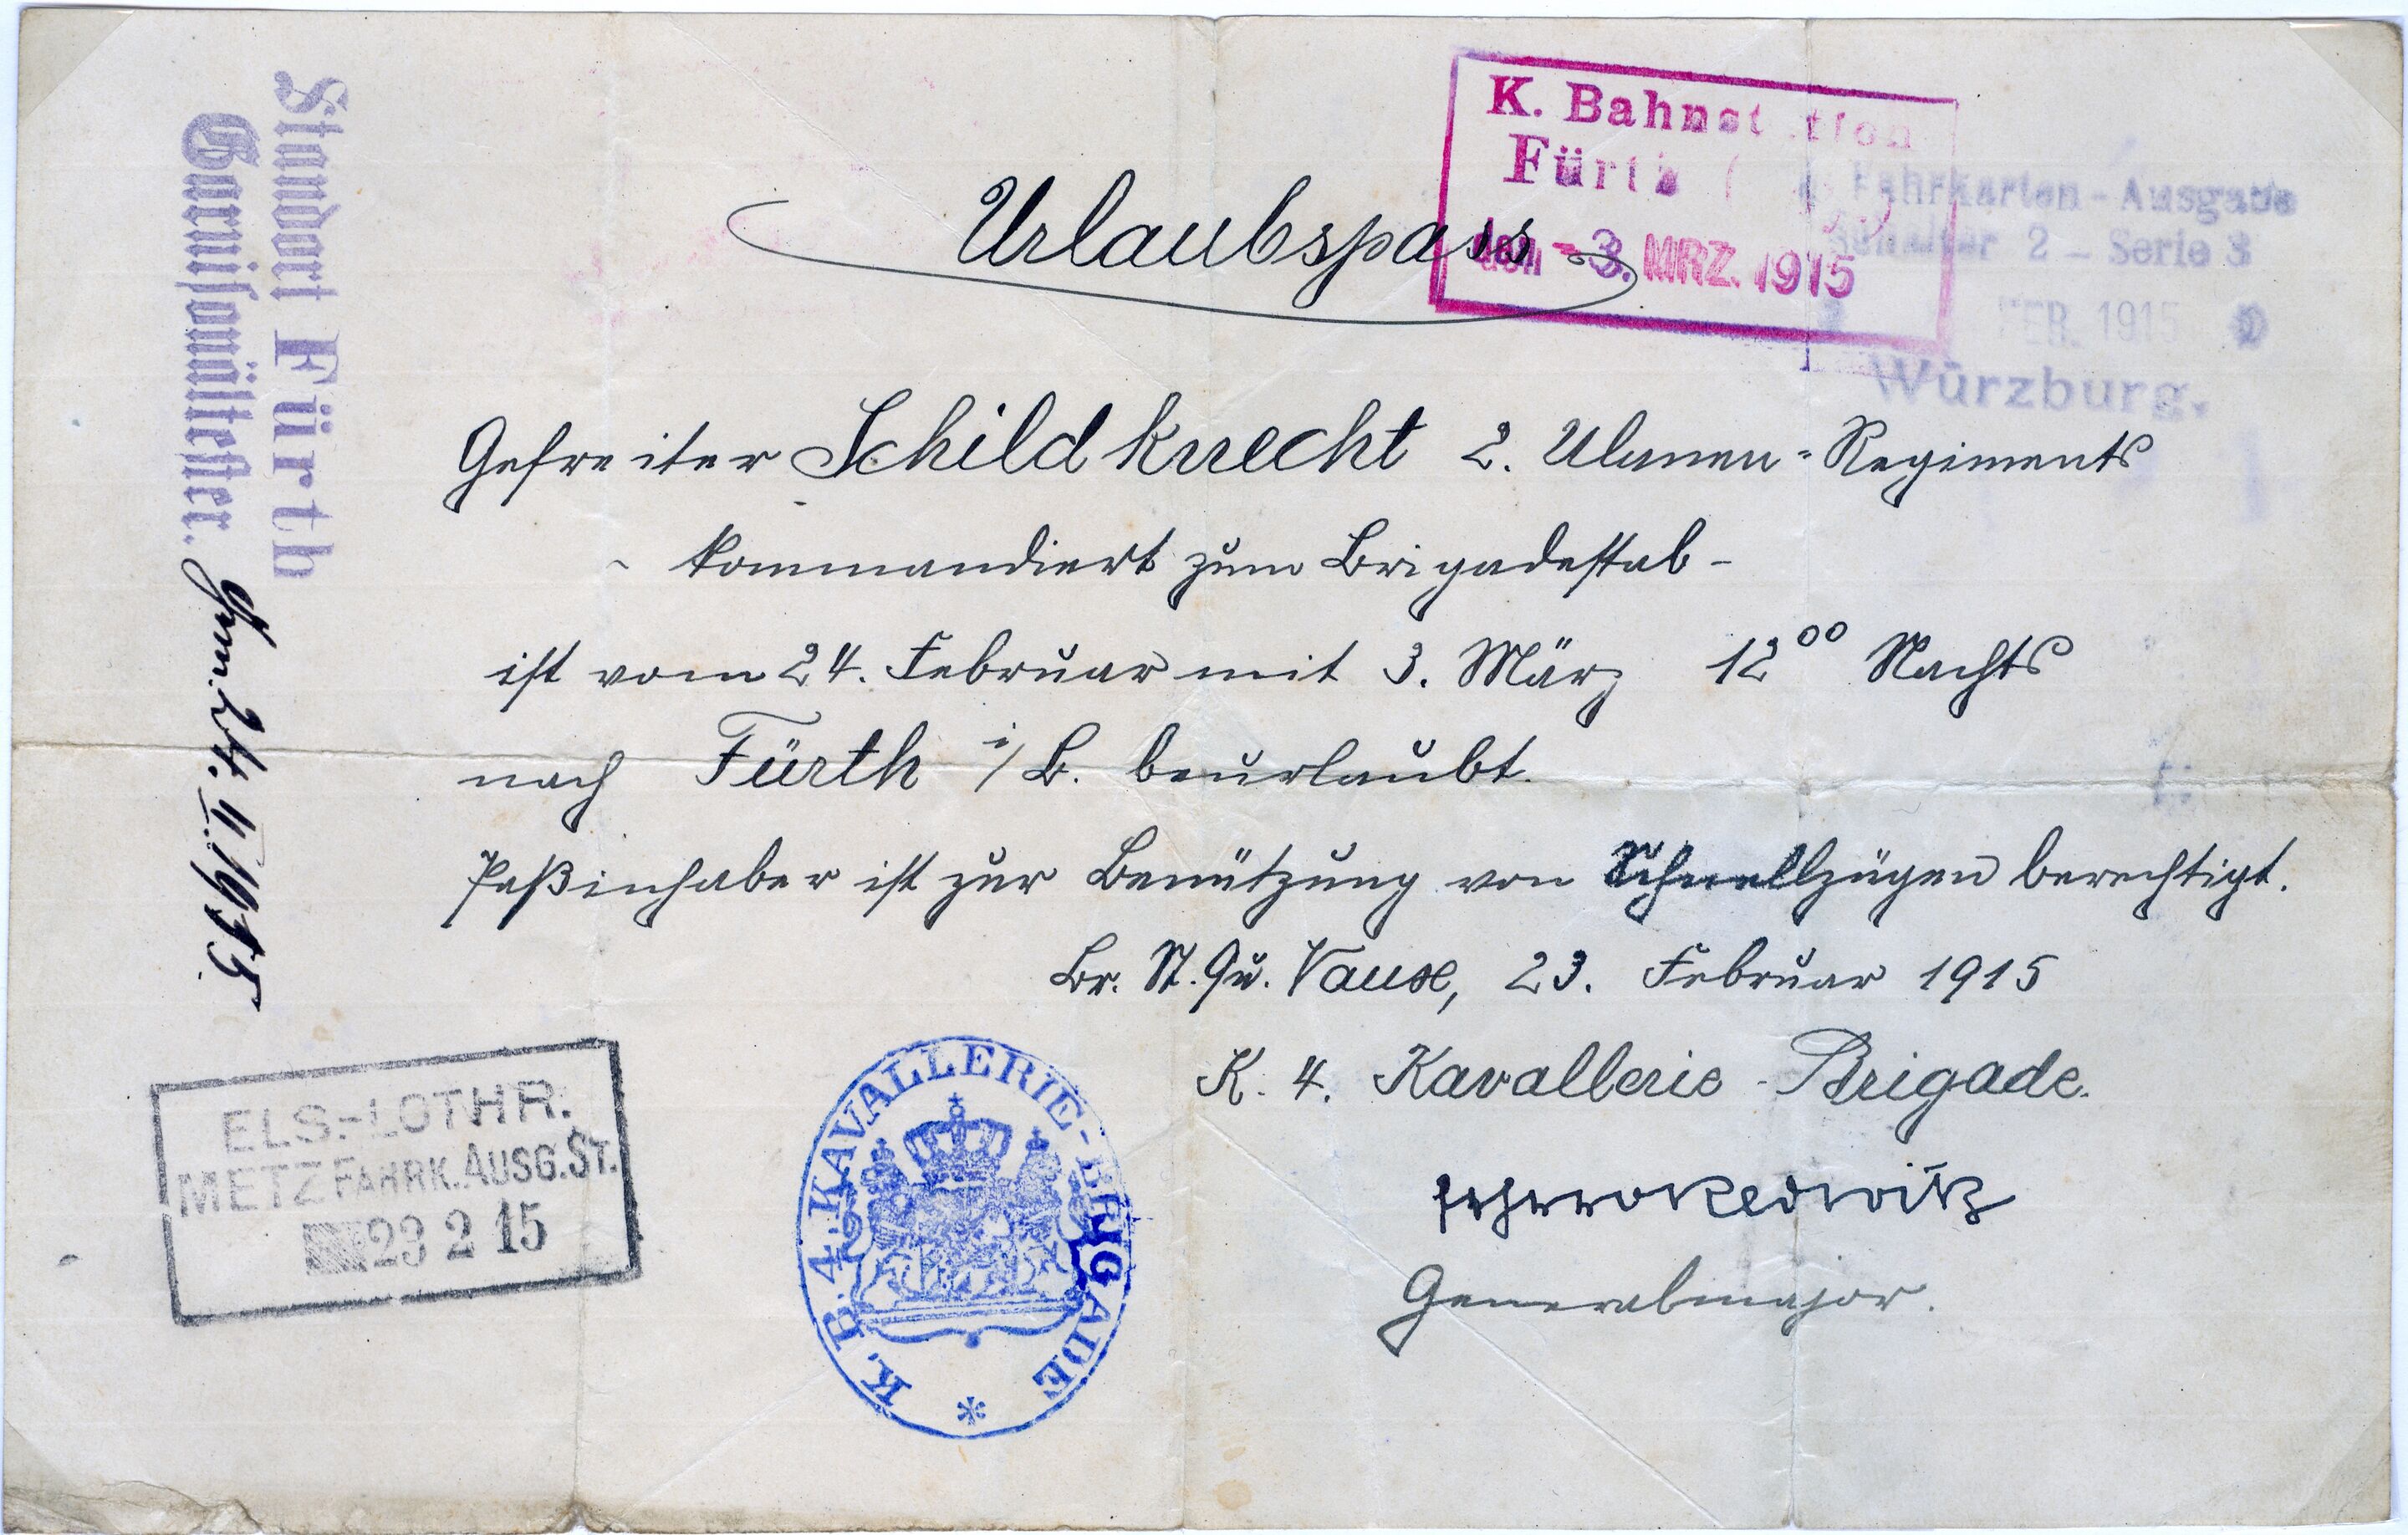 Standort Fürth
Garnisonältester.
24. II. 1915
K. Bahnst tion
Fürth
den -3. MRZ. 1915
Fahrkarten-Ausgabe
Schalter 2 - Serie 3
FEB. 1915
Würzburg.
Urlaubspass
Gefreiter Schildknecht 2. Ulanen-Regiments
- kommandiert zum Brigadestab -
ist vom 24. Februar mit 3. März 12⁰⁰ Nachts
nach Fürth i/B. beurlaubt.
Paßinhaber ist zur Benützung von Schnellzügen berechtigt.
Br. St. Qu. Vaux, 23. Februar 1915
K. 4. Kavallerie-Brigade.
Generalmajor.
K. B. 4. KAVALLERIE-BRIGADE
ELS.-LOTHR.
METZ FAHRK. AUSG. ST.
23 2 15